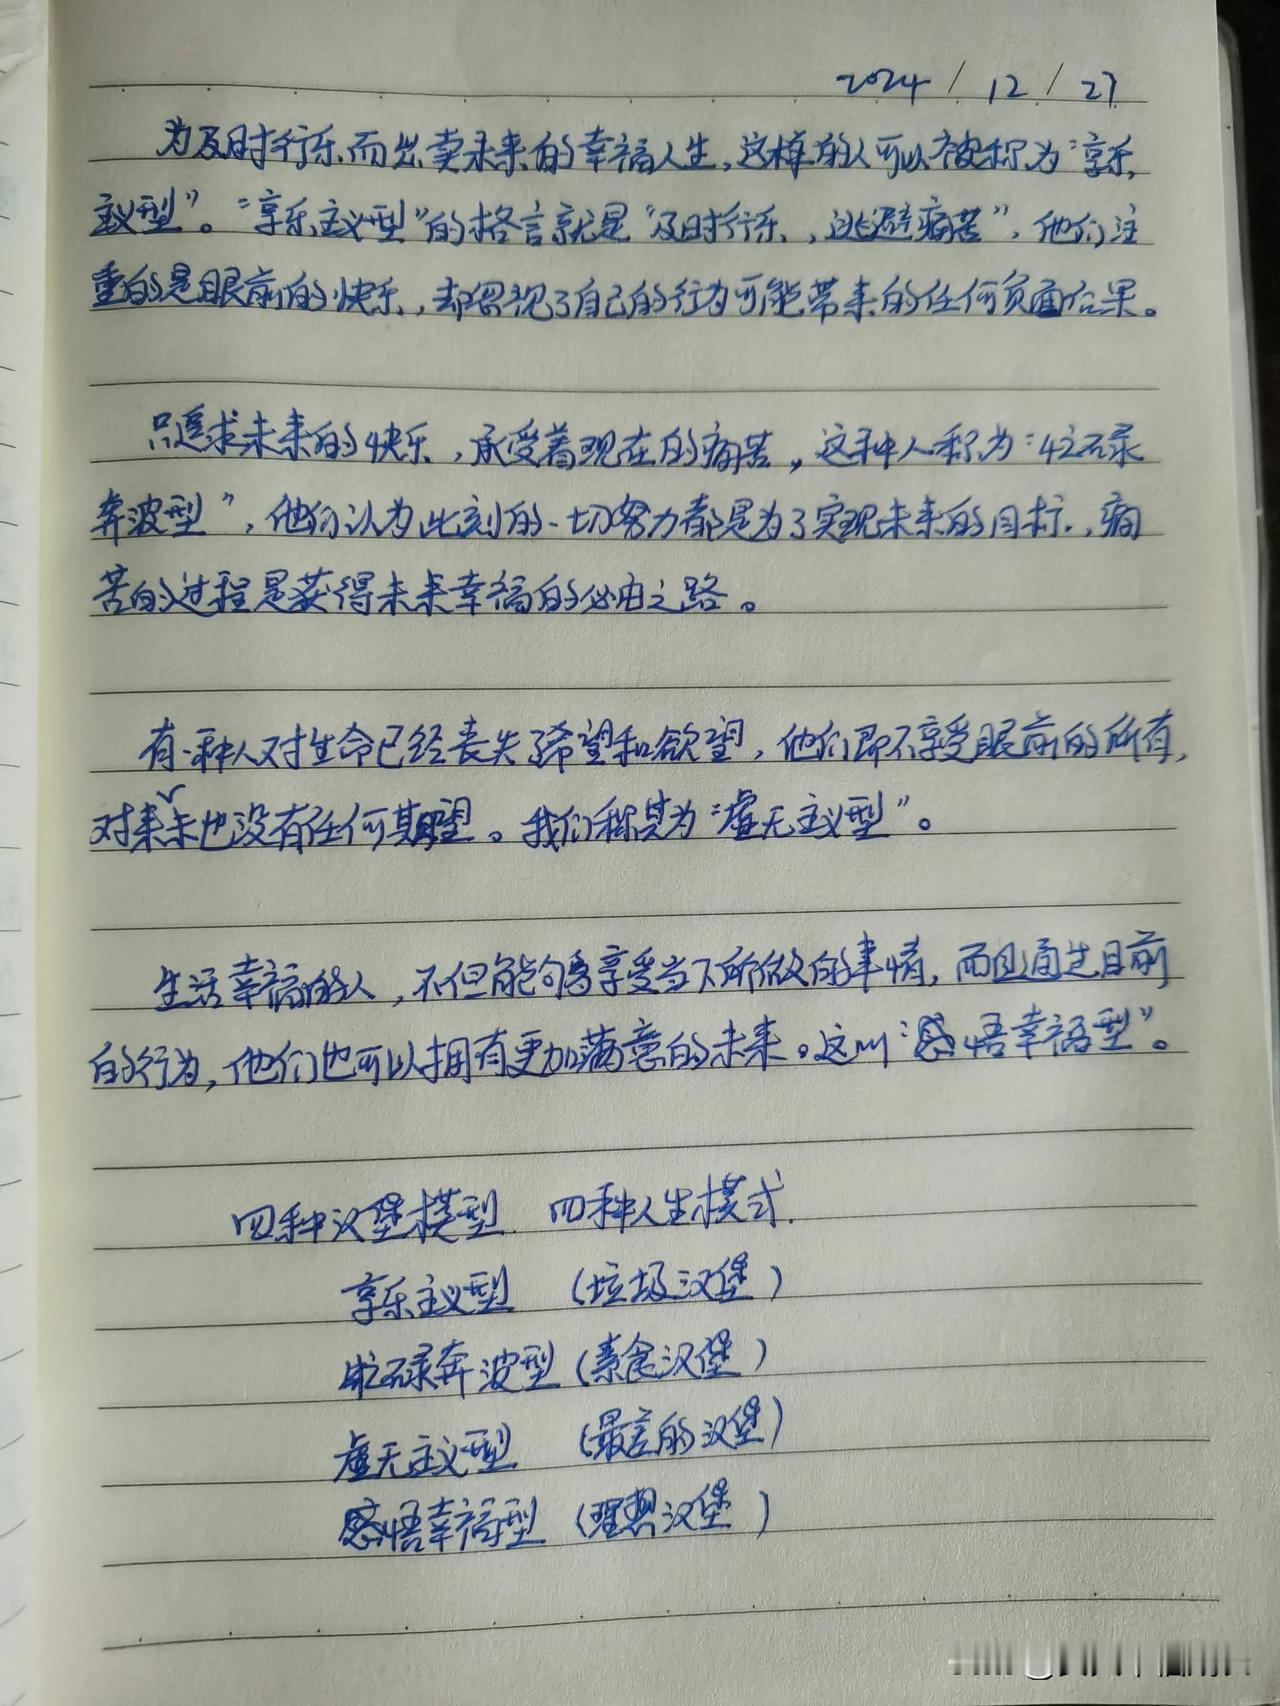 2024/12/27
为及时行乐而出卖未来的幸福人生，这样的人可以被称为“享乐
主义型”。“享乐主义型”的格言就是“及时行乐，逃避痛苦”，他们注
重的是眼前的快乐，却忽视了自己的行为可能带来的任何负面后果。
只追求未来的快乐，承受着现在的痛苦，这种人称为“忙碌
奔波型”，他们认为此刻的一切努力都是为了实现未来的目标，痛
苦的过程是获得未来幸福的必由之路。
有一种人对生命已经丧失了希望和欲望，他们即不享受眼前的所有，
对未来也没有任何期望。我们称其为“虚无主义型”。
生活幸福的人，不但能够享受当下所做的事情，而且通过目前
的行为，他们也可以拥有更加满意的未来。这叫“感悟幸福型”。
四种汉堡模型 四种人生模式.
享乐主义型 （垃圾汉堡）
忙碌奔波型（素食汉堡）
虚无主义型 （最差的汉堡）
感悟幸福型（理想汉堡）